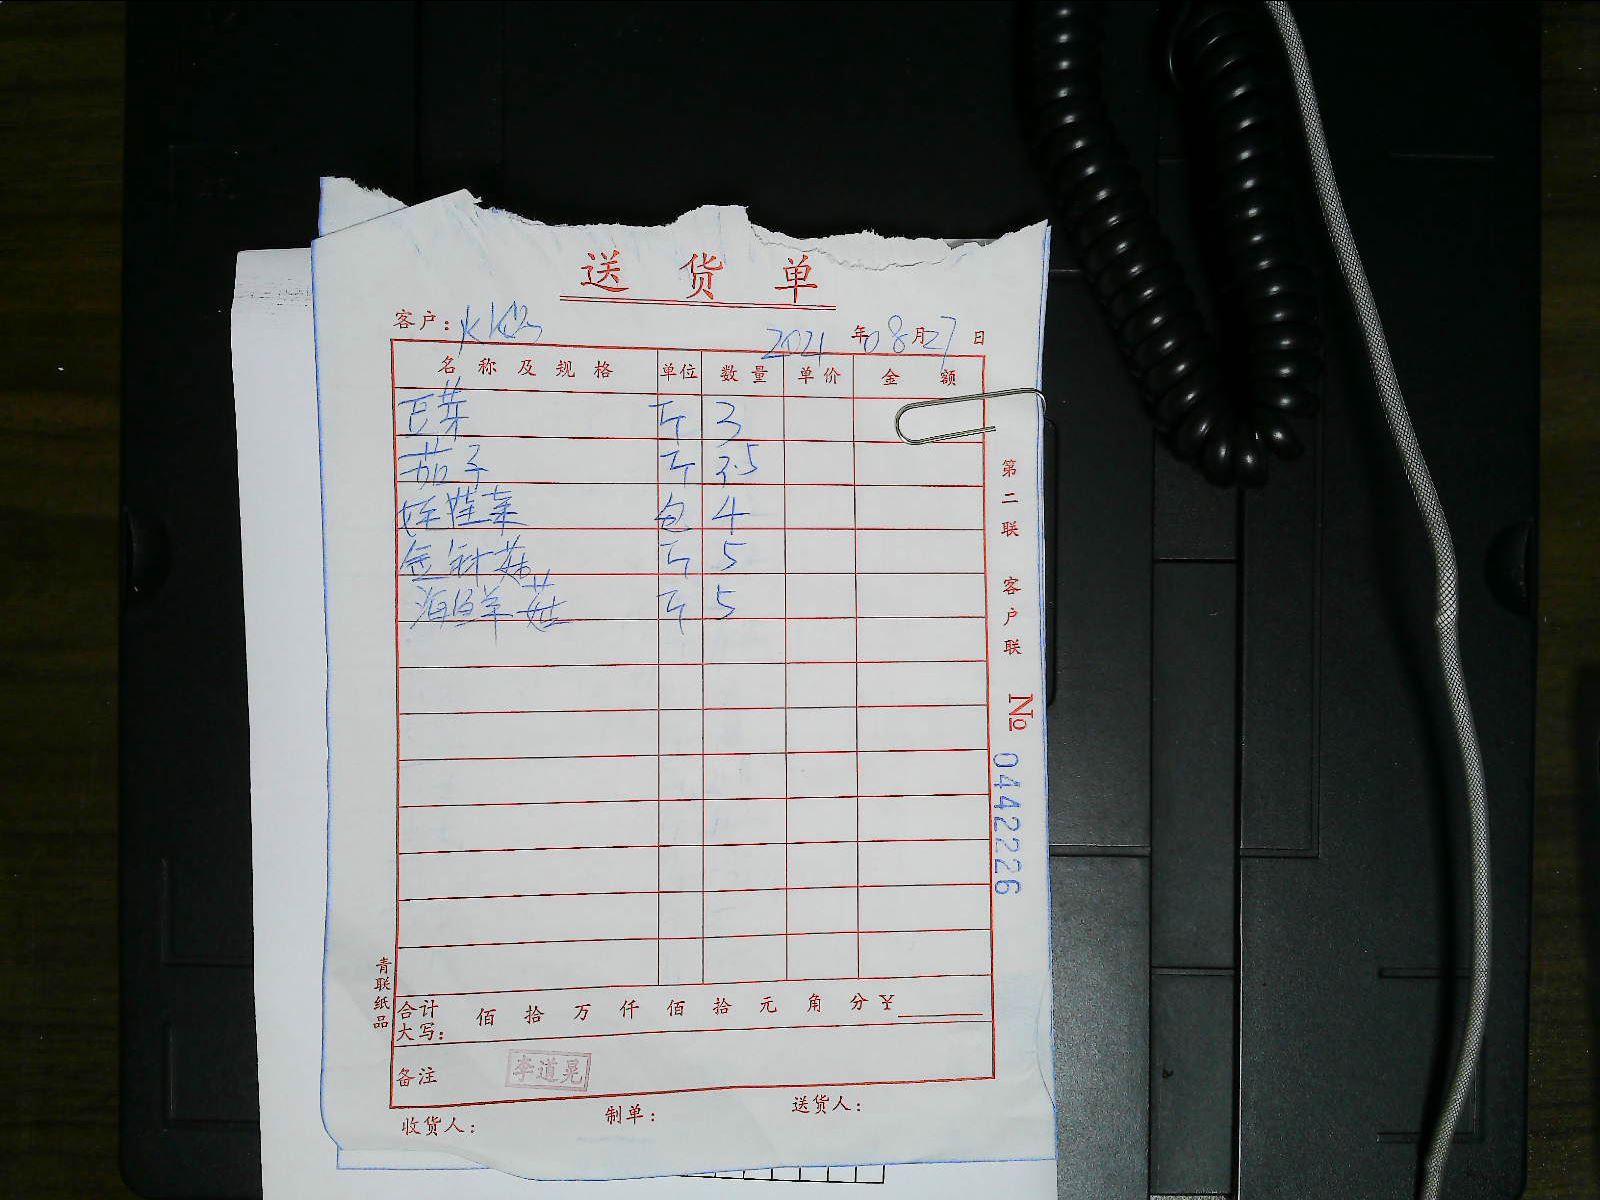 送货单
客户：
2021年08月27日
名称及规格 单位 数量 单价 金额
豆芽 斤 3
茄子 斤 3.5
娃娃菜 包 4
金针菇 斤 5
海鲜菇 斤 5
合计大写： 佰 拾 万 仟 佰 拾 元 角 分 ¥
备注 李道晃
收货人： 制单： 送货人：
第二联 客户联
№ 0442226
青联纸品